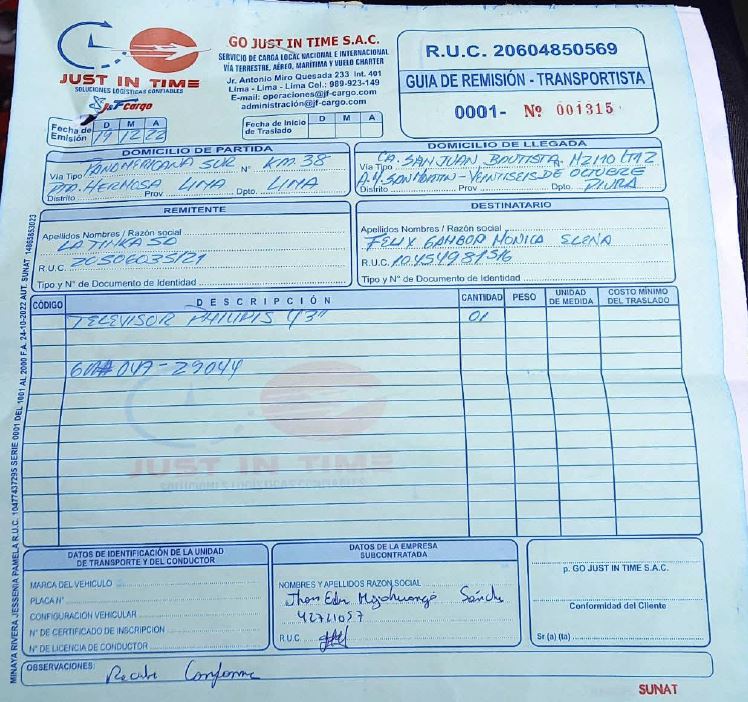 JUST IN TIME
SOLUCIONES LOGÍSTICAS CONFIABLES
J&F Cargo
GO JUST IN TIME S.A.C.
SERVICIO DE CARGA LOCAL NACIONAL E INTERNACIONAL
VÍA TERRESTRE, AÉREO, MARÍTIMA Y VUELO CHARTER
Jr. Antonio Miro Quesada 233 Int. 401
Lima - Lima - Lima Cel.: 989-923-149
E-mail: operaciones@jf-cargo.com
administración@jf-cargo.com
R.U.C. 20604850569
GUIA DE REMISIÓN - TRANSPORTISTA
0001- Nº 001315
Fecha de Emisión D M A
19 12 22
Fecha de Inicio de Traslado D M A
DOMICILIO DE PARTIDA
Vía Tipo PANAMERICANA SUR N° KM 38
PTO. HERMOSA LIMA LIMA
Distrito Prov Dpto.
DOMICILIO DE LLEGADA
Vía Tipo CA. SAN JUAN BAUTISTA MZ110 LT12
A.H SAN MARTIN - VEINTISEIS DE OCTUBRE
Distrito Prov. Dpto. PIURA
REMITENTE
Apellidos Nombres / Razón social
LA TINKA SA
R.U.C. 20506035121
Tipo y N° de Documento de Identidad
DESTINATARIO
Apellidos Nombres / Razón social
FELIX GAMBOA MONICA ELENA
R.U.C. 10454981516
Tipo y N° de Documento de Identidad
CÓDIGO DESCRIPCIÓN CANTIDAD PESO UNIDAD DE MEDIDA COSTO MÍNIMO DEL TRASLADO
TELEVISOR PHILIPS 43" 01
047-29044
JUST IN TIME
SOLUCIONES LOGÍSTICAS CONFIABLES
MINAYA RIVERA JESSENIA PAMELA R.U.C. 10477437295 SERIE 0001 DEL 1001 AL 2000 F.A. 24-10-2022 AUT. SUNAT
DATOS DE IDENTIFICACIÓN DE LA UNIDAD DE TRANSPORTE Y DEL CONDUCTOR
MARCA DEL VEHICULO
PLACA N°
CONFIGURACIÓN VEHICULAR
N° DE CERTIFICADO DE INSCRIPCION
N° DE LICENCIA DE CONDUCTOR
DATOS DE LA EMPRESA SUBCONTRATADA
NOMBRES Y APELLIDOS RAZON SOCIAL
Jhon
42721057
R.U.C.
p. GO JUST IN TIME S.A.C.
Conformidad del Cliente
Sr (a) (ta)
OBSERVACIONES: Recibi Conforme
SUNAT